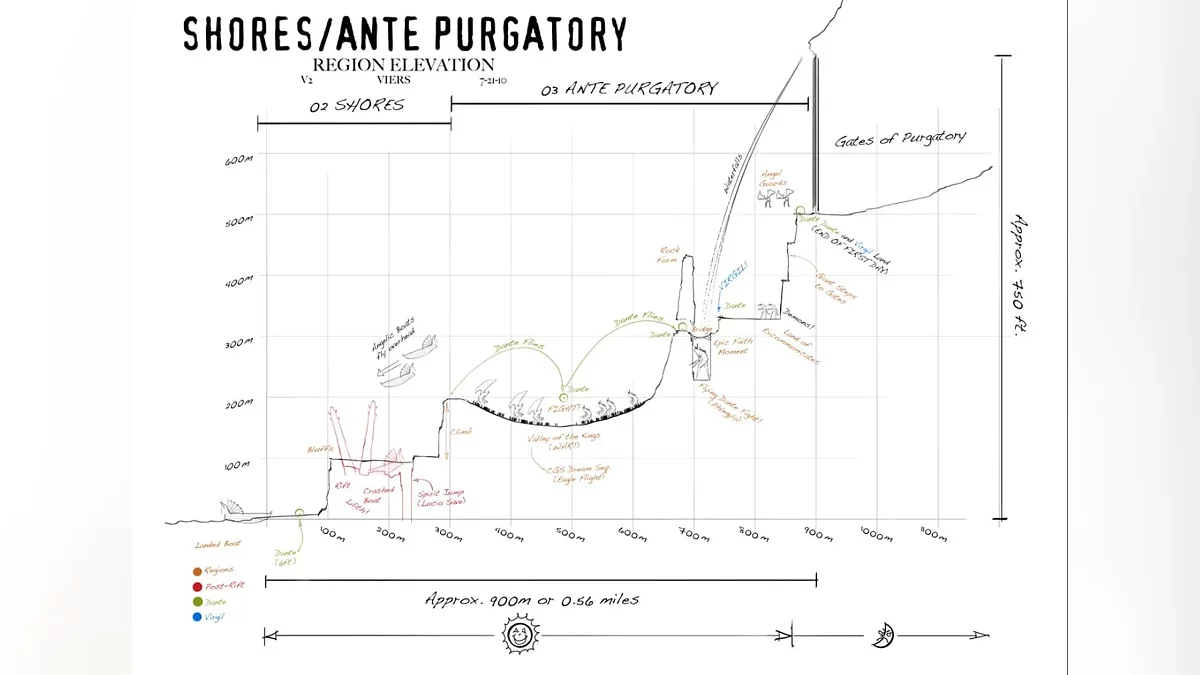 SHORES/ANTE PURGATORY
REGION ELEVATION
V2 VIERS 7-21-10
03 ANTE PURGATORY
02 SHORES
Gates of Purgatory
600m
500m
400m
300m
200m
100m
Waterfalls
Angel
Guards
Dante Dante and Virgil Land
(END OF FIRST DAY)
Approx. 750 ft.
Rock
Form
VIRGIL!
Giant Steps
to Gates
Dante
Demons!
Land of
Excommunicates
Angelic Boats
fly overhead
Dante Flies
Dante Flies
Dante
Bridge
Epic Faith
Moment
Flying Dante Fight!
Dante
FIGHT!
Climb
Valley of the Kings
CGS Dream Seq.
(Eagle Flight)
Bluffs
Rift
Crashed
Boat
Lilith!
Spirit Jump
(Lucia Save)
100m 200m 300m 400m 500m 600m 700m 800m 900m 1000m 1100m
Landed Boat
Dante
(6ft)
Regions
Post-Rift
Dante
Virgil
Approx. 900m or 0.56 miles